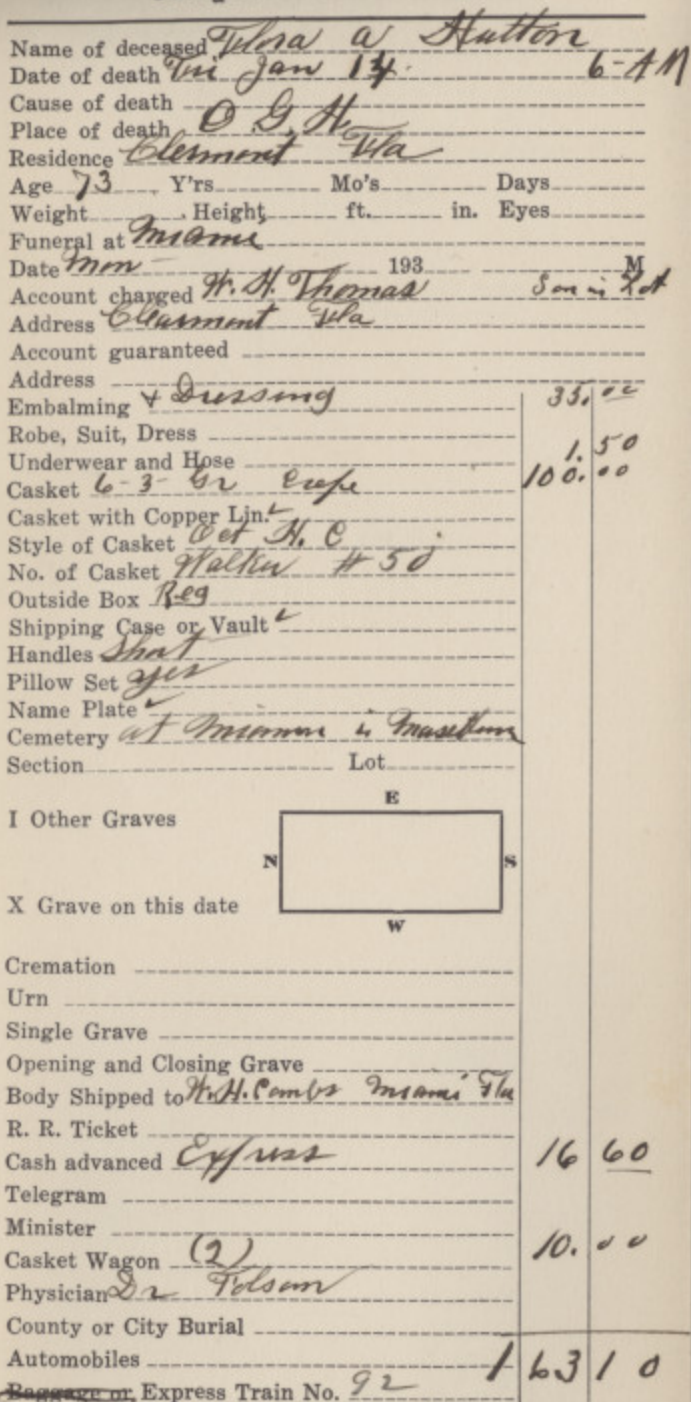 Name of deceased Flora A Hutton
Date of death Fri Jan 14. 6-AM
Cause of death
Place of death O G H.
Residence Clermont Fla
Age 73 Y'rs. Mo's Days
Weight Height ft. in. Eyes
Funeral at Miami
Date Mon 193 M
Account charged W. H. Thomas Son in
Address Clearmont Fla
Account guaranteed
Address
Embalming & Dressing 35.00
Robe, Suit, Dress
Underwear and Hose 1.50
Casket 6-3 Gr Crepe 100.00
Casket with Copper Lin.
Style of Casket Oct H. C
No. of Casket Walker # 50
Outside Box Reg
Shipping Case or Vault
Handles Short
Pillow Set yes
Name Plate
Cemetery at in
Section Lot
E
I Other Graves
N S
X Grave on this date
W
Cremation
Urn
Single Grave
Opening and Closing Grave
Body Shipped to W. H. Combs Miami Fla
R. R. Ticket
Cash advanced Express 16 60
Telegram
Minister
Casket Wagon (2) 10.00
Physician Dr Folsom
County or City Burial
Automobiles 163 10
Baggage or Express Train No. 92